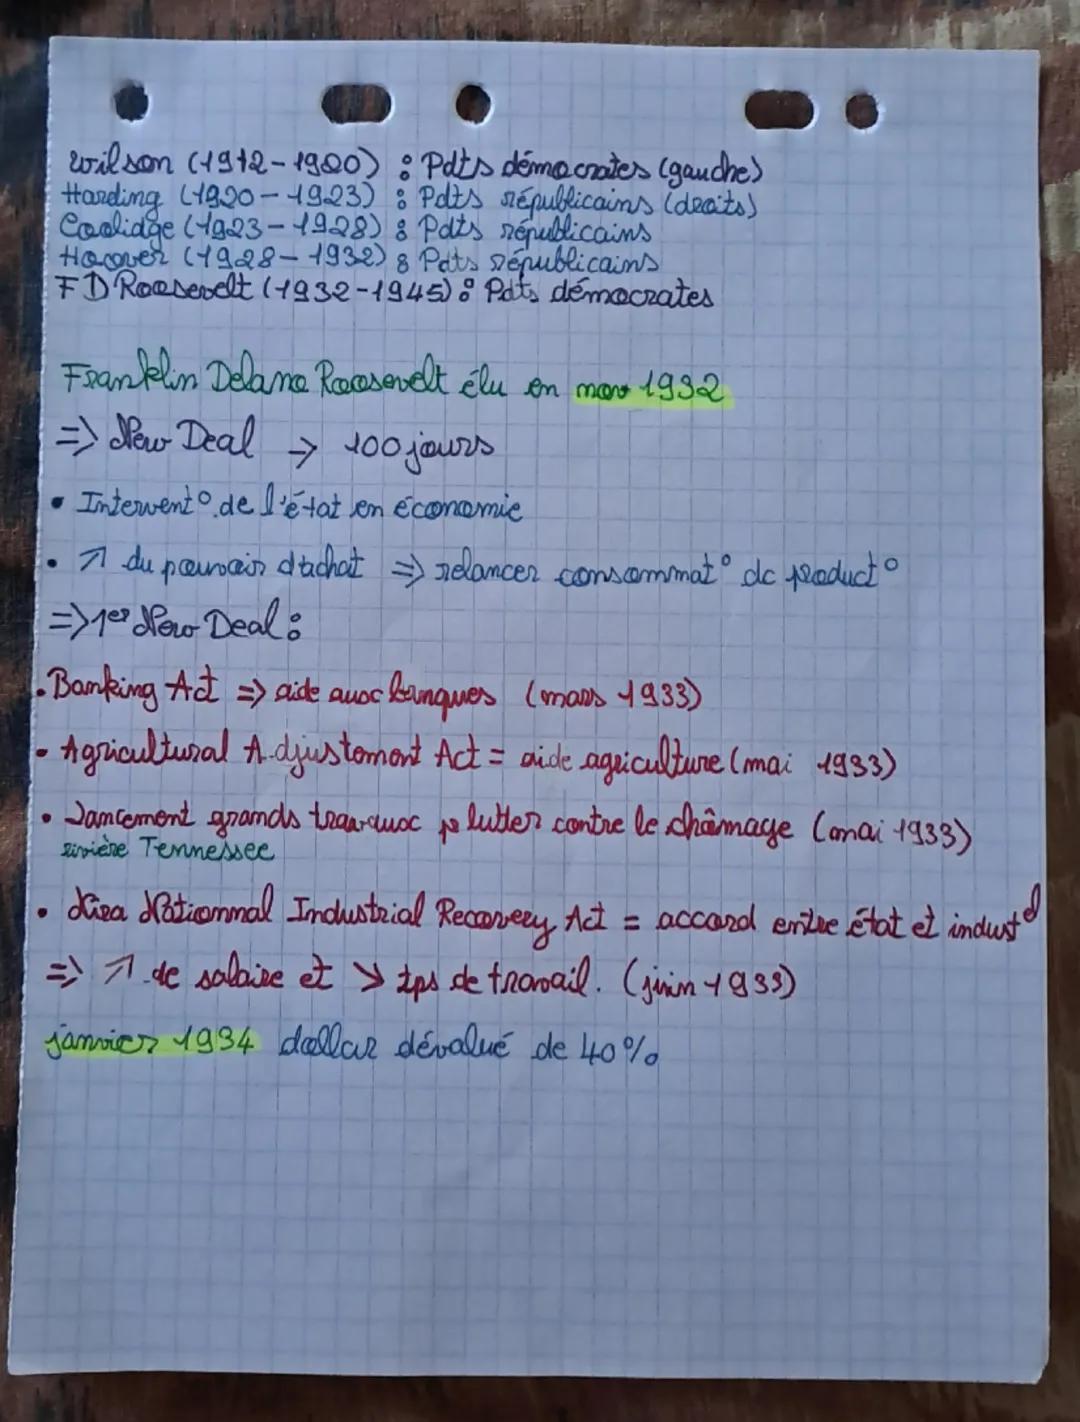 Wilson (1912-1920) : Pdts démocrates (gauche)
Harding (1920-1923) : Pdts républicains (droits)
Coolidge (1923-1928) : Pdts républicains
Hoover (1928-1932) : Pdts républicains
FD Roosevelt (1932-1945) : Pdts démocrates
Franklin Delano Roosevelt élu en nov 1932
=> New Deal -> 100 jours
• Intervent° de l'état en économie
• ↗ du pouvoir d'achat => relancer consommat° dc product°
=> 1er New Deal :
• Banking Act => aide aux banques (mars 1933)
• Agricultural Adjustement Act = aide agriculture (mai 1933)
• Lancement grands travaux pr lutter contre le chômage (mai 1933)
rivière Tennessee
• Nira National Industrial Recovery Act = accord entre état et indust el
=> ↗ de salaire et ↘ tps de travail. (juin 1933)
janvier 1934 dollar dévalué de 40%